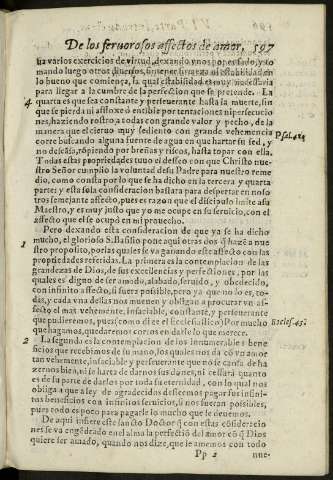 De los feruorosos affectos de amor, 597
ua varios exercicios de virtud, dexando vnos por enfado, y to
mando luego otros diuersos, sin tener firmeza ni estabilidad en
lo bueno que comiença, la qual estabilidad es muy necessaria
para llegar a la cumbre de la perfection que se pretende. La
4 quarta es que sea constante y perseuerante hasta la muerte, sin
que se pierda ni afloxe o entibie por tentaciones ni persecucio
nes, haziendo rostro a todas con grande valor y pecho, de la
manera que el cieruo muy sediento con grande vehemencia Psal. 41.
corre buscando alguna fuente de agua en que hartar su sed, y
no descãsa, rõpiendo por breñas y riscos, hasta topar con ella.
Todas estas propriedades tuuo el desseo con que Christo nue-
stro Señor cumplio la voluntad de su Padre para nuestro reme
dio, como consta por lo que se ha dicho en la tercera y quarta
partes y esta sola consideracion bastara para despertar en noso
tros semejante affecto, pues es razon que el discipulo imite a su
Maestro, y es muy justo que yo me ocupe en su seruicio, con el
affecto que el se ocupò en mi prouecho.
Pero dexando esta consideracion de que ya se ha dicho
1 mucho, el glorioso S. Basilio pone aqui otras dos q̃ hazẽ a nue
stro proposito, por las quales se va ganando este affecto con las
propriedades referidas. La primera es la contemplacion de las
grandezas de Dios, de sus excellencias y perfectiones, por las
quales es digno de ser amado, alabado, seruido, y obedecido,
con infinito affecto, si fuera possible, pero ya que no lo es, to-
das, y cada vna dellas nos mueuen y obligan a procurar vn af-
fecto el mas vehemente, insaciable, constante, y perseuerante
que pudieremos, pues (como dize el Ecclesiastico) Por mucho Eccles. 43.
que hagamos, quedaremos cortos en darle lo que merece.
2 La segunda es la contemplacion de los innumerables bene
ficios que recebimos de su mano, los quales nos dã cõ vn amor
tan vehemente, insaciable, y perseuerante que no se cansa de ha
zernos bien, ni se harta de darnos sus dones, ni cessarà quanto
es de su parte de darlos por toda su eternidad, con lo qual nos
obliga a que a ley de agradecidos desseemos pagar sus infini-
tos beneficios con infinitos seruicios, si nos fueran possibles,
pues todo es poco para pagarle lo mucho que le deuemos.
De aqui infiere este sancto Doctor q̃ con estas consideracio
nes se va engẽdrado en el alma la perfectiõ del amor cõ q̃ Dios
quiere ser amado, quando nos dize, que le amemos con todo
Pp 2 nue-